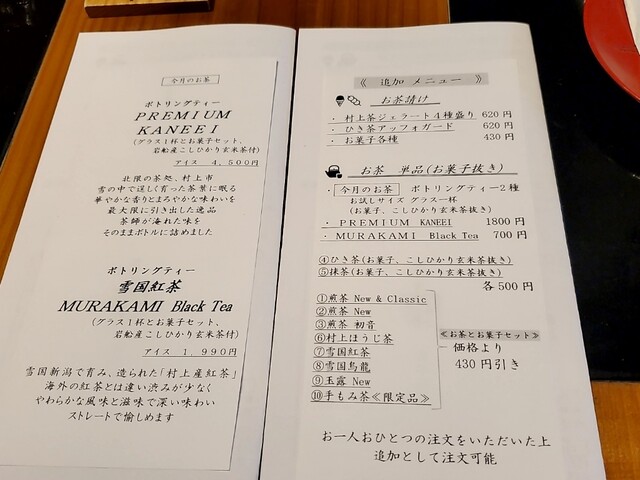 今月のお茶
ボトリングティー
PREMIUM
KANEEI
(グラス1杯とお菓子セット、
岩船産こしひかり玄米茶付)
アイス 4,500円
北限の茶処、村上市
雪の中で逞しく育った茶葉に眠る
華やかな香りとまろやかな味わいを
最大限に引き出した逸品
茶師が淹れた味を
そのままボトルに詰めました
ボトリングティー
雪国紅茶
MURAKAMI Black Tea
(グラス1杯とお菓子セット、
岩船産こしひかり玄米茶付)
アイス 1,990円
雪国新潟で育み、造られた「村上産紅茶」
海外の紅茶とは違い渋みが少なく
やわらかな風味と滋味で深い味わい
ストレートで愉しめます
《 追加 メニュー 》
お茶請け
・村上茶ジェラート4種盛り 620円
・ひき茶アッフォガード 620円
・お菓子各種 430円
お茶 単品(お菓子抜き)
・今月のお茶 ボトリングティー2種
お試しサイズ グラス一杯
(お菓子、こしひかり玄米茶抜き)
・PREMIUM KANEEI 1800円
・MURAKAMI Black Tea 700円
④ひき茶(お菓子、こしひかり玄米茶抜き)
⑤抹茶(お菓子、こしひかり玄米茶抜き)
各500円
①煎茶 New & Classic
②煎茶 New
③煎茶 初音
⑥村上ほうじ茶
⑦雪国紅茶
⑧雪国烏龍
⑨玉露 New
⑩手もみ茶≪限定品≫
≪お茶とお菓子セット≫
価格より
430円引き
お一人おひとつの注文をいただいた上
追加として注文可能